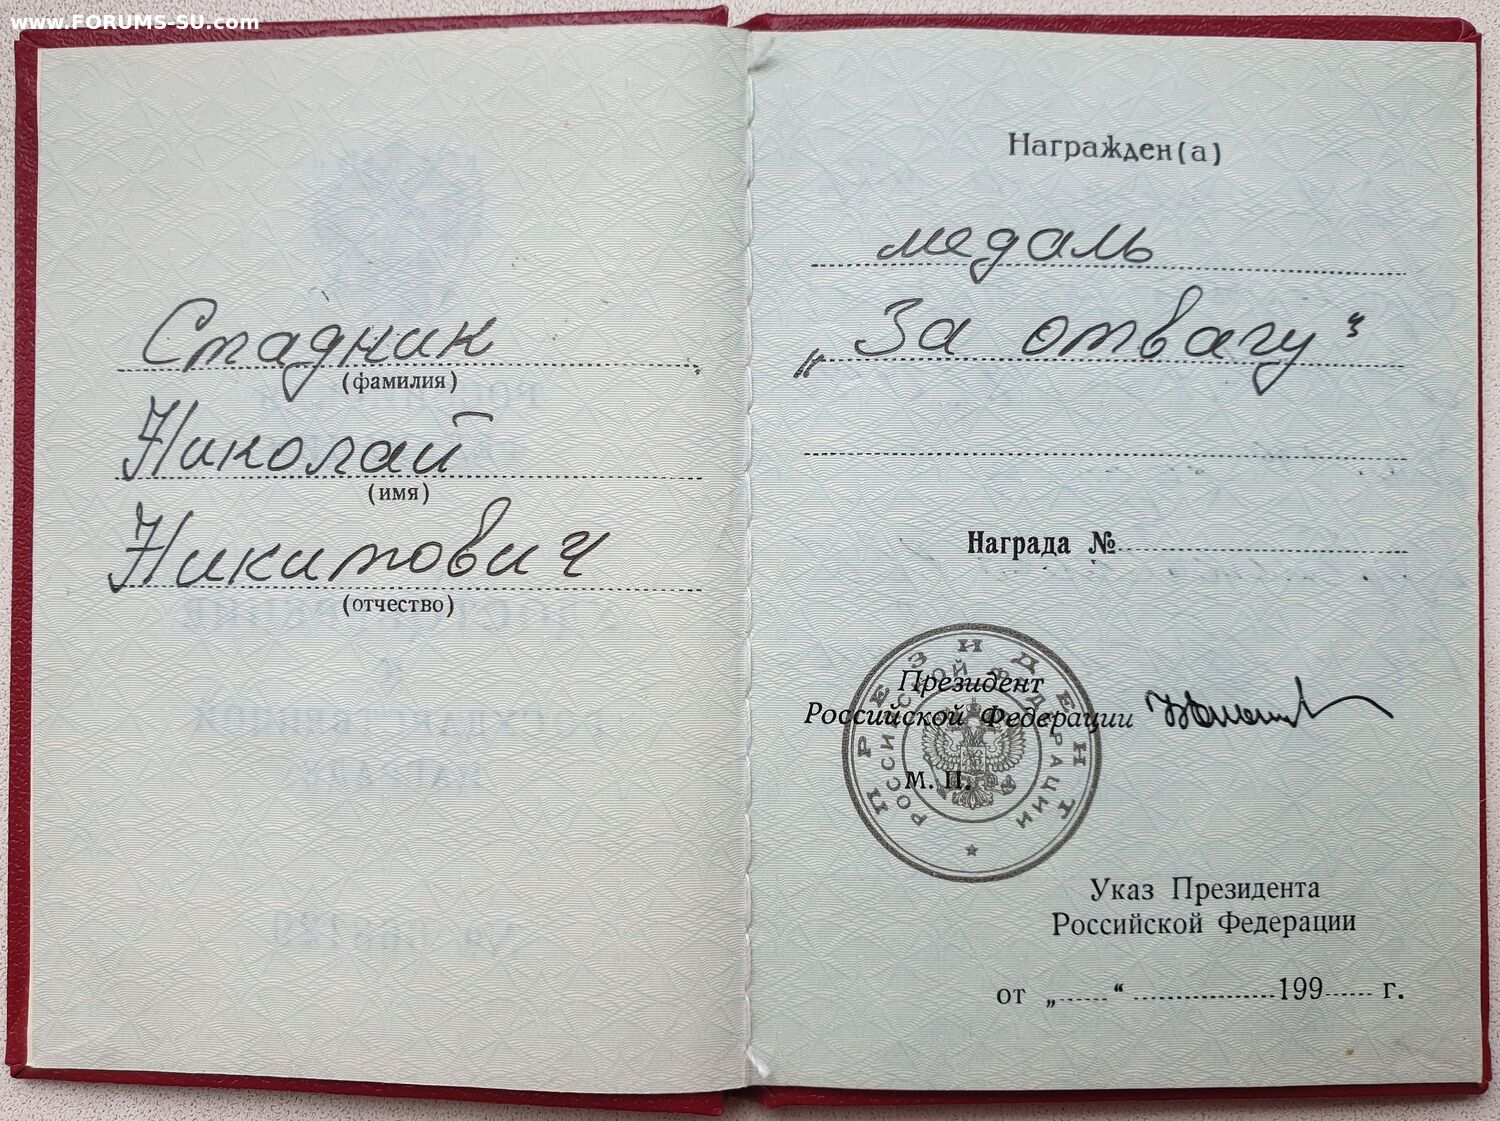 www.FORUMS-SU.com
Стадник
(фамилия)
Николай
(имя)
Никитович
(отчество)
Награжден(а)
медаль
„За отвагу“
Награда №
ПРЕЗИДЕНТ
РОССИЙСКОЙ ФЕДЕРАЦИИ
Президент
Российской Федерации
М. П.
Указ Президента
Российской Федерации
от „......“ ................199...... г.